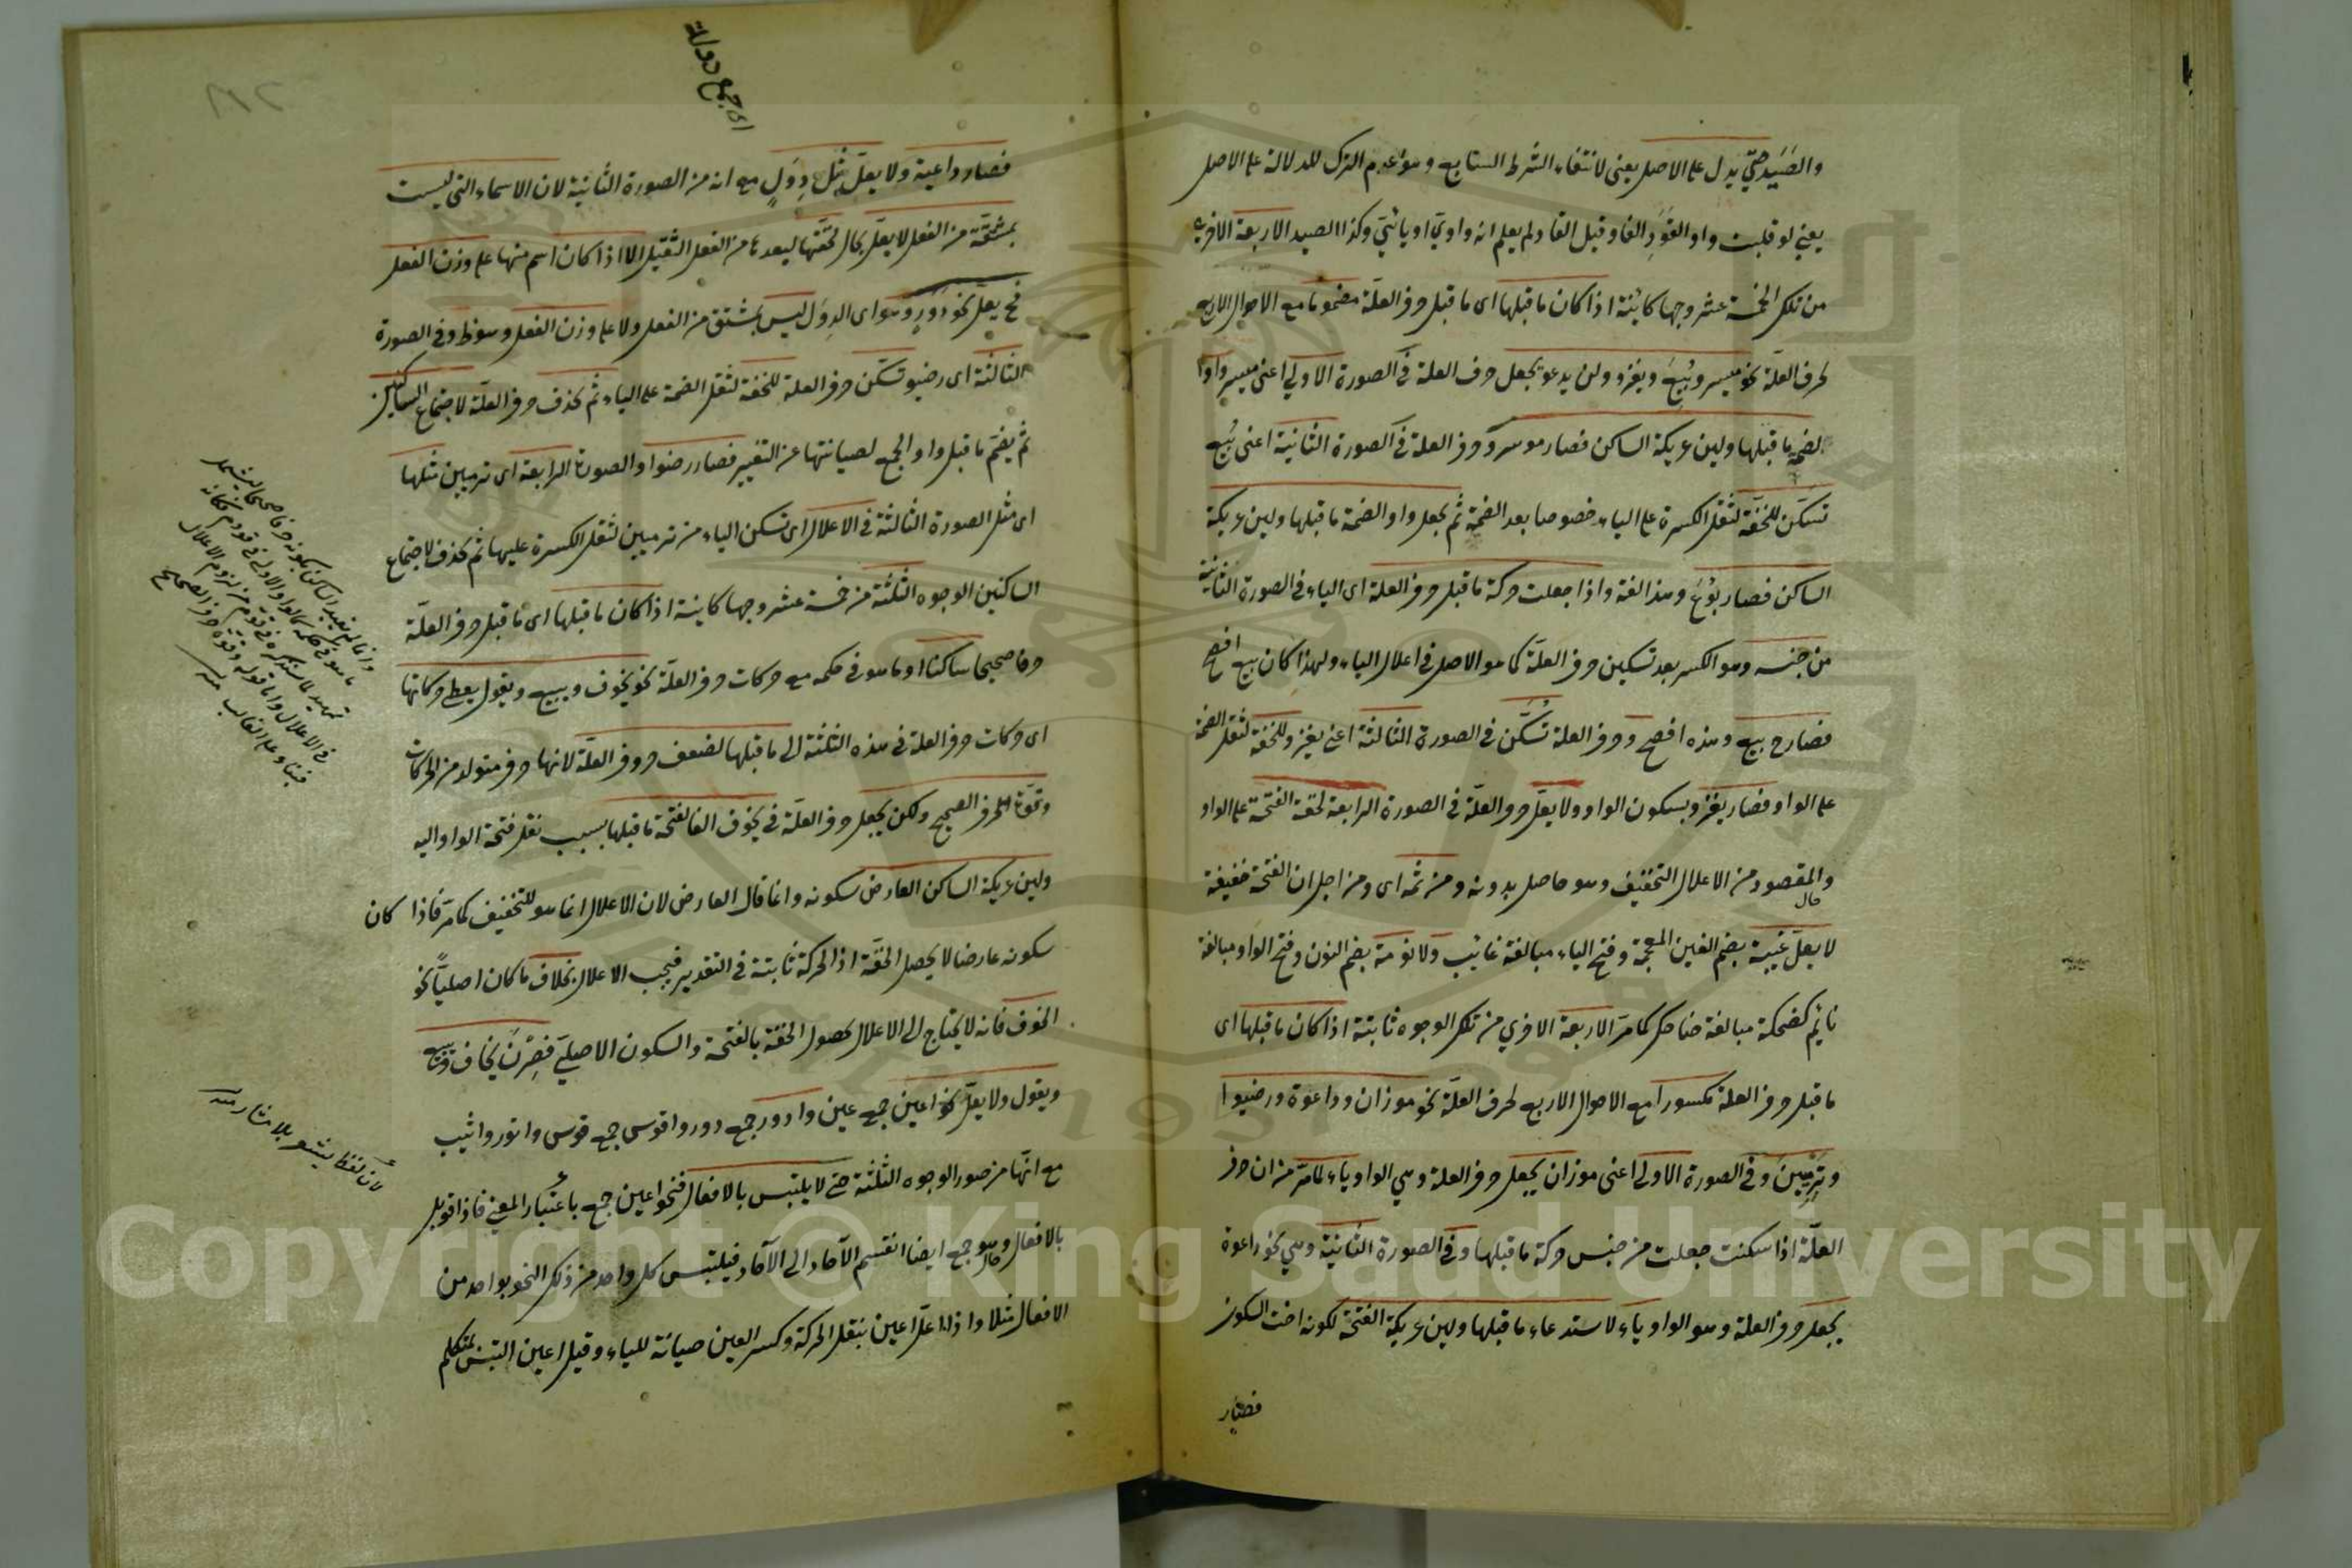 والصَّيَد حتى يدل على الاصل يعنى لانتفاء الشرط السابع وهو عدم الترك للدلالة على الاصل
يعنى لو قلبت واو القَوَد الفا وقيل القاد لم يعلم انه واوىّ او يائىّ وكذا الصيد الاربعة الاخرى
من تلك الخمسة عشر وجها كائنة اذا كان ما قبلها اى ما قبل حرف العلة مضموما مع الاحوال الاربع
لحرف العلّة نحو ميسر وبُيِعَ ويغزو ولن يدعو يجعل حرف العلة فى الصورة الاولى اعنى ميسر واوا
لضمة ما قبلها ولين عريكة الساكن فصار موسر وحرف العلة فى الصورة الثانية اعنى بُيِع
تسكّن للخفّة لثقل الكسرة على الياء خصوصا بعد الضمة ثم يجعل واوا لضمة ما قبلها ولين عريكة
الساكن فصار بُوْعَ وهذا لغة واذا جعلت حركة ما قبل حرف العلة اى الياء فى الصورة الثانية
من جنسه وهو الكسر بعد تسكين حرف العلة كما هو الاصل فى اعلال الياء ولهذا كان بيع افصح
فصار ح بيع وهذه افصح وحرف العلة تُسَكَّن فى الصورة الثالثة اعنى يغزو للخفة لثقل الضمة
على الواو فصار يغزو بسكون الواو ولا يعلّ حرف العلّة فى الصورة الرابعة لخفة الفتحة على الواو
والمقصود من الاعلال التخفيف وهو حاصل بدونه ومن ثمه اى ومن اجل ان الفتحة خفيفة
حال
لا يعلّ غيبة بضم الغين المعجمة وفتح الياء مبالغة غائب ولا نومة بضم النون وفتح الواو مبالغة
نائم كضحكة مبالغة ضاحك كما مرّ الاربعة الاخرى من تلك الوجوه ثابتة اذا كان ما قبلها اى
ما قبل حرف العلة مكسورا مع الاحوال الاربع لحرف العلّة نحو موزان وداعوة ورضيوا
وترميين وفى الصورة الاولى اعنى موزان يجعل حرف العلة وهى الواو ياء لما مرّ من ان حرف
العلّة اذا سكنت جعلت من جنس حركة ما قبلها وفى الصورة الثانية وهى نحو داعوة
يجعل حرف العلة وهو الواو ياء لاستدعاء ما قبلها ولين عريكة الفتحة لكونه اخت السكون
فصار
اى جمع دولة
فصار داعية ولا يعلّ مثل دِوَلٍ مع انه من الصورة الثانية لان الاسماء التى ليست
بمشتقّة من الفعل لا يعلّ بحال لخفّتها لبعدها من الفعل الثقيل الا اذا كان اسم منها على وزن الفعل
فح يعلّ نحو دَوَرٍ وهو اى الدِوَل ليس بمشتق من الفعل ولا على وزن الفعل وهو ظ وفى الصورة
الثالثة اى رضيو تسكن حرف العلة للخفة لثقل الضمة على الياء ثم يحذف حرف العلّة لاجتماع الساكنين
ثم يضمّ ما قبل واو الجمع لصيانتها عن التغيير فصار رضوا والصورة الرابعة اى ترميين مثلها
اى مثل الصورة الثالثة فى الاعلال اى تسكن الياء من ترميين لثقل الكسرة عليها ثم يحذف لاجتماع
الساكنين الوجوه الثلثة من خمسة عشر وجها كاينة اذا كان ما قبلها اى ما قبل حرف العلّة
حرفا صحيحا ساكنا او ما هو فى حكمه مع حركات حرف العلّة نحو يخوف ويبيع ويقول يعطى حركاتها
اى حركات حرف العلة فى هذه الثلثة الى ما قبلها لضعف حروف العلّة لانها حرف متولد من الحركات
وقوّة الحرف الصحيح ولكن يجعل حرف العلّة فى يخوف الفا لفتحة ما قبلها بسبب نقل فتحة الواو اليه
ولين عريكة الساكن العارض سكونه وانما قال العارض لان الاعلال انما هو للتخفيف كما مرّ فاذا كان
سكونه عارضا لا يحصل الخفّة اذ الحركة ثابتة فى التقدير فيجب الاعلال بخلاف ما كان اصليّا نحو
الخوف فانه لا يحتاج الى الاعلال لحصول الخفّة بالفتحة والسكون الاصلىّ فصِرْنَ يخاف ويبيع
ويقول ولا يعلّ نحو اعين جمع عين وادور جمع دور واقوس جمع قوس وانور واثيب
مع انّها من صور الوجوه الثلثة حتى لا يلتبس بالافعال فنحو اعين جمع باعتبار المعنى فاذا قوبل
بالافعال وهو جمع ايضا انقسم الآحاد الى الآحاد فيلتبس كل واحد من ذلك النحو بواحد من
حال
الافعال مثلا واذا اعلّ اعين بنقل الحركة وكسر العين صيانة للياء وقيل اعين التبس بمتكلم
Copyright © King Saud University
1957